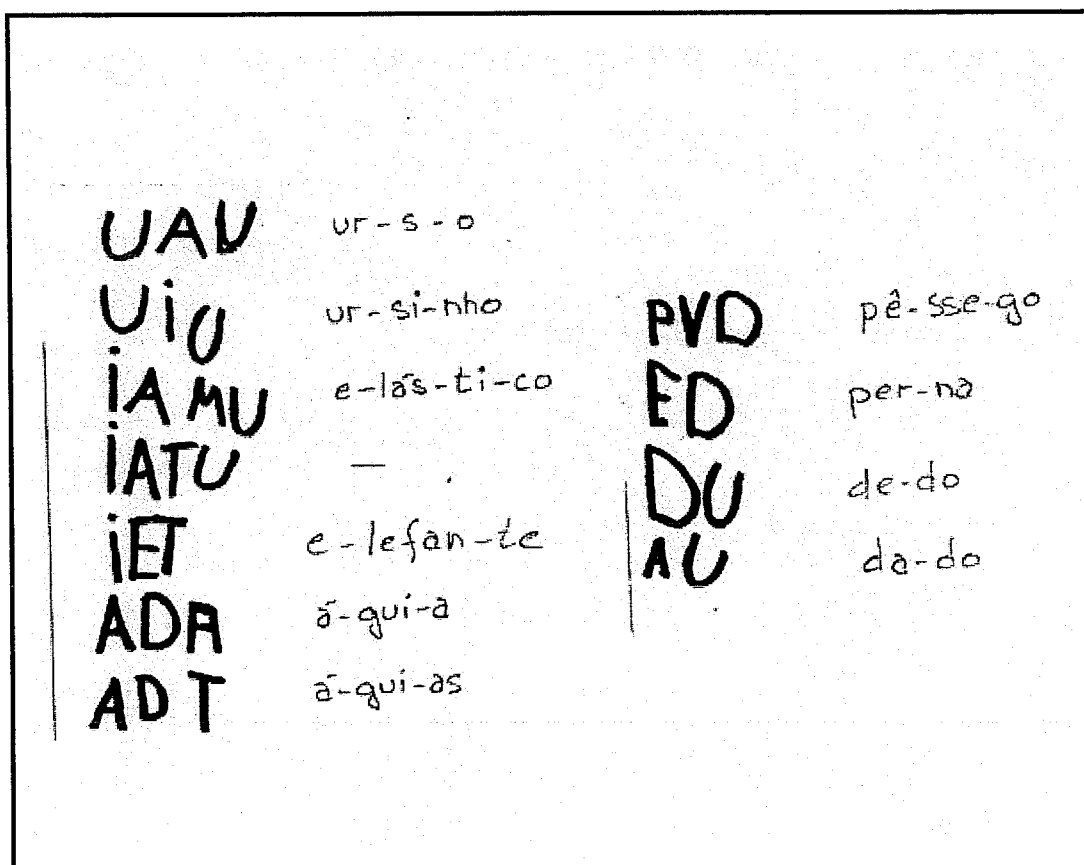 UAU ur-s-o
UiU ur-si-nho
iAMU e-lás-ti-co
iATU —
iET e-lefan-te
ADA á-gui-a
ADT á-gui-as
PVD pê-sse-go
ED per-na
DU de-do
AU da-do